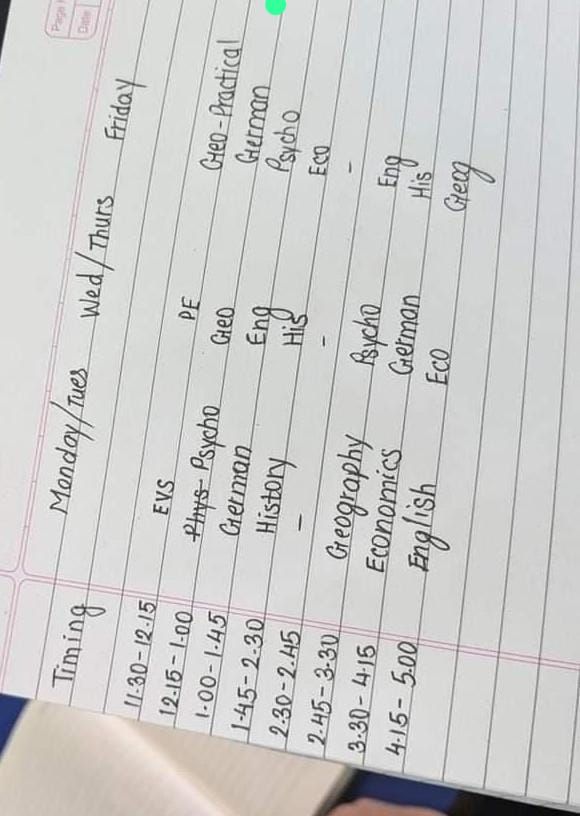 Page
Date
Timing Monday/Tues Wed/Thurs Friday
11.30-12.15 EVS PE Geo-Practical
12.15-1.00 Phys Psycho Geo German
1.00-1.45 German Eng Psycho
1.45-2.30 History His Eco
2.30-2.45 - - -
2.45-3.30 Geography Psycho Eng
3.30-4.15 Economics German His
4.15-5.00 English Eco Geog